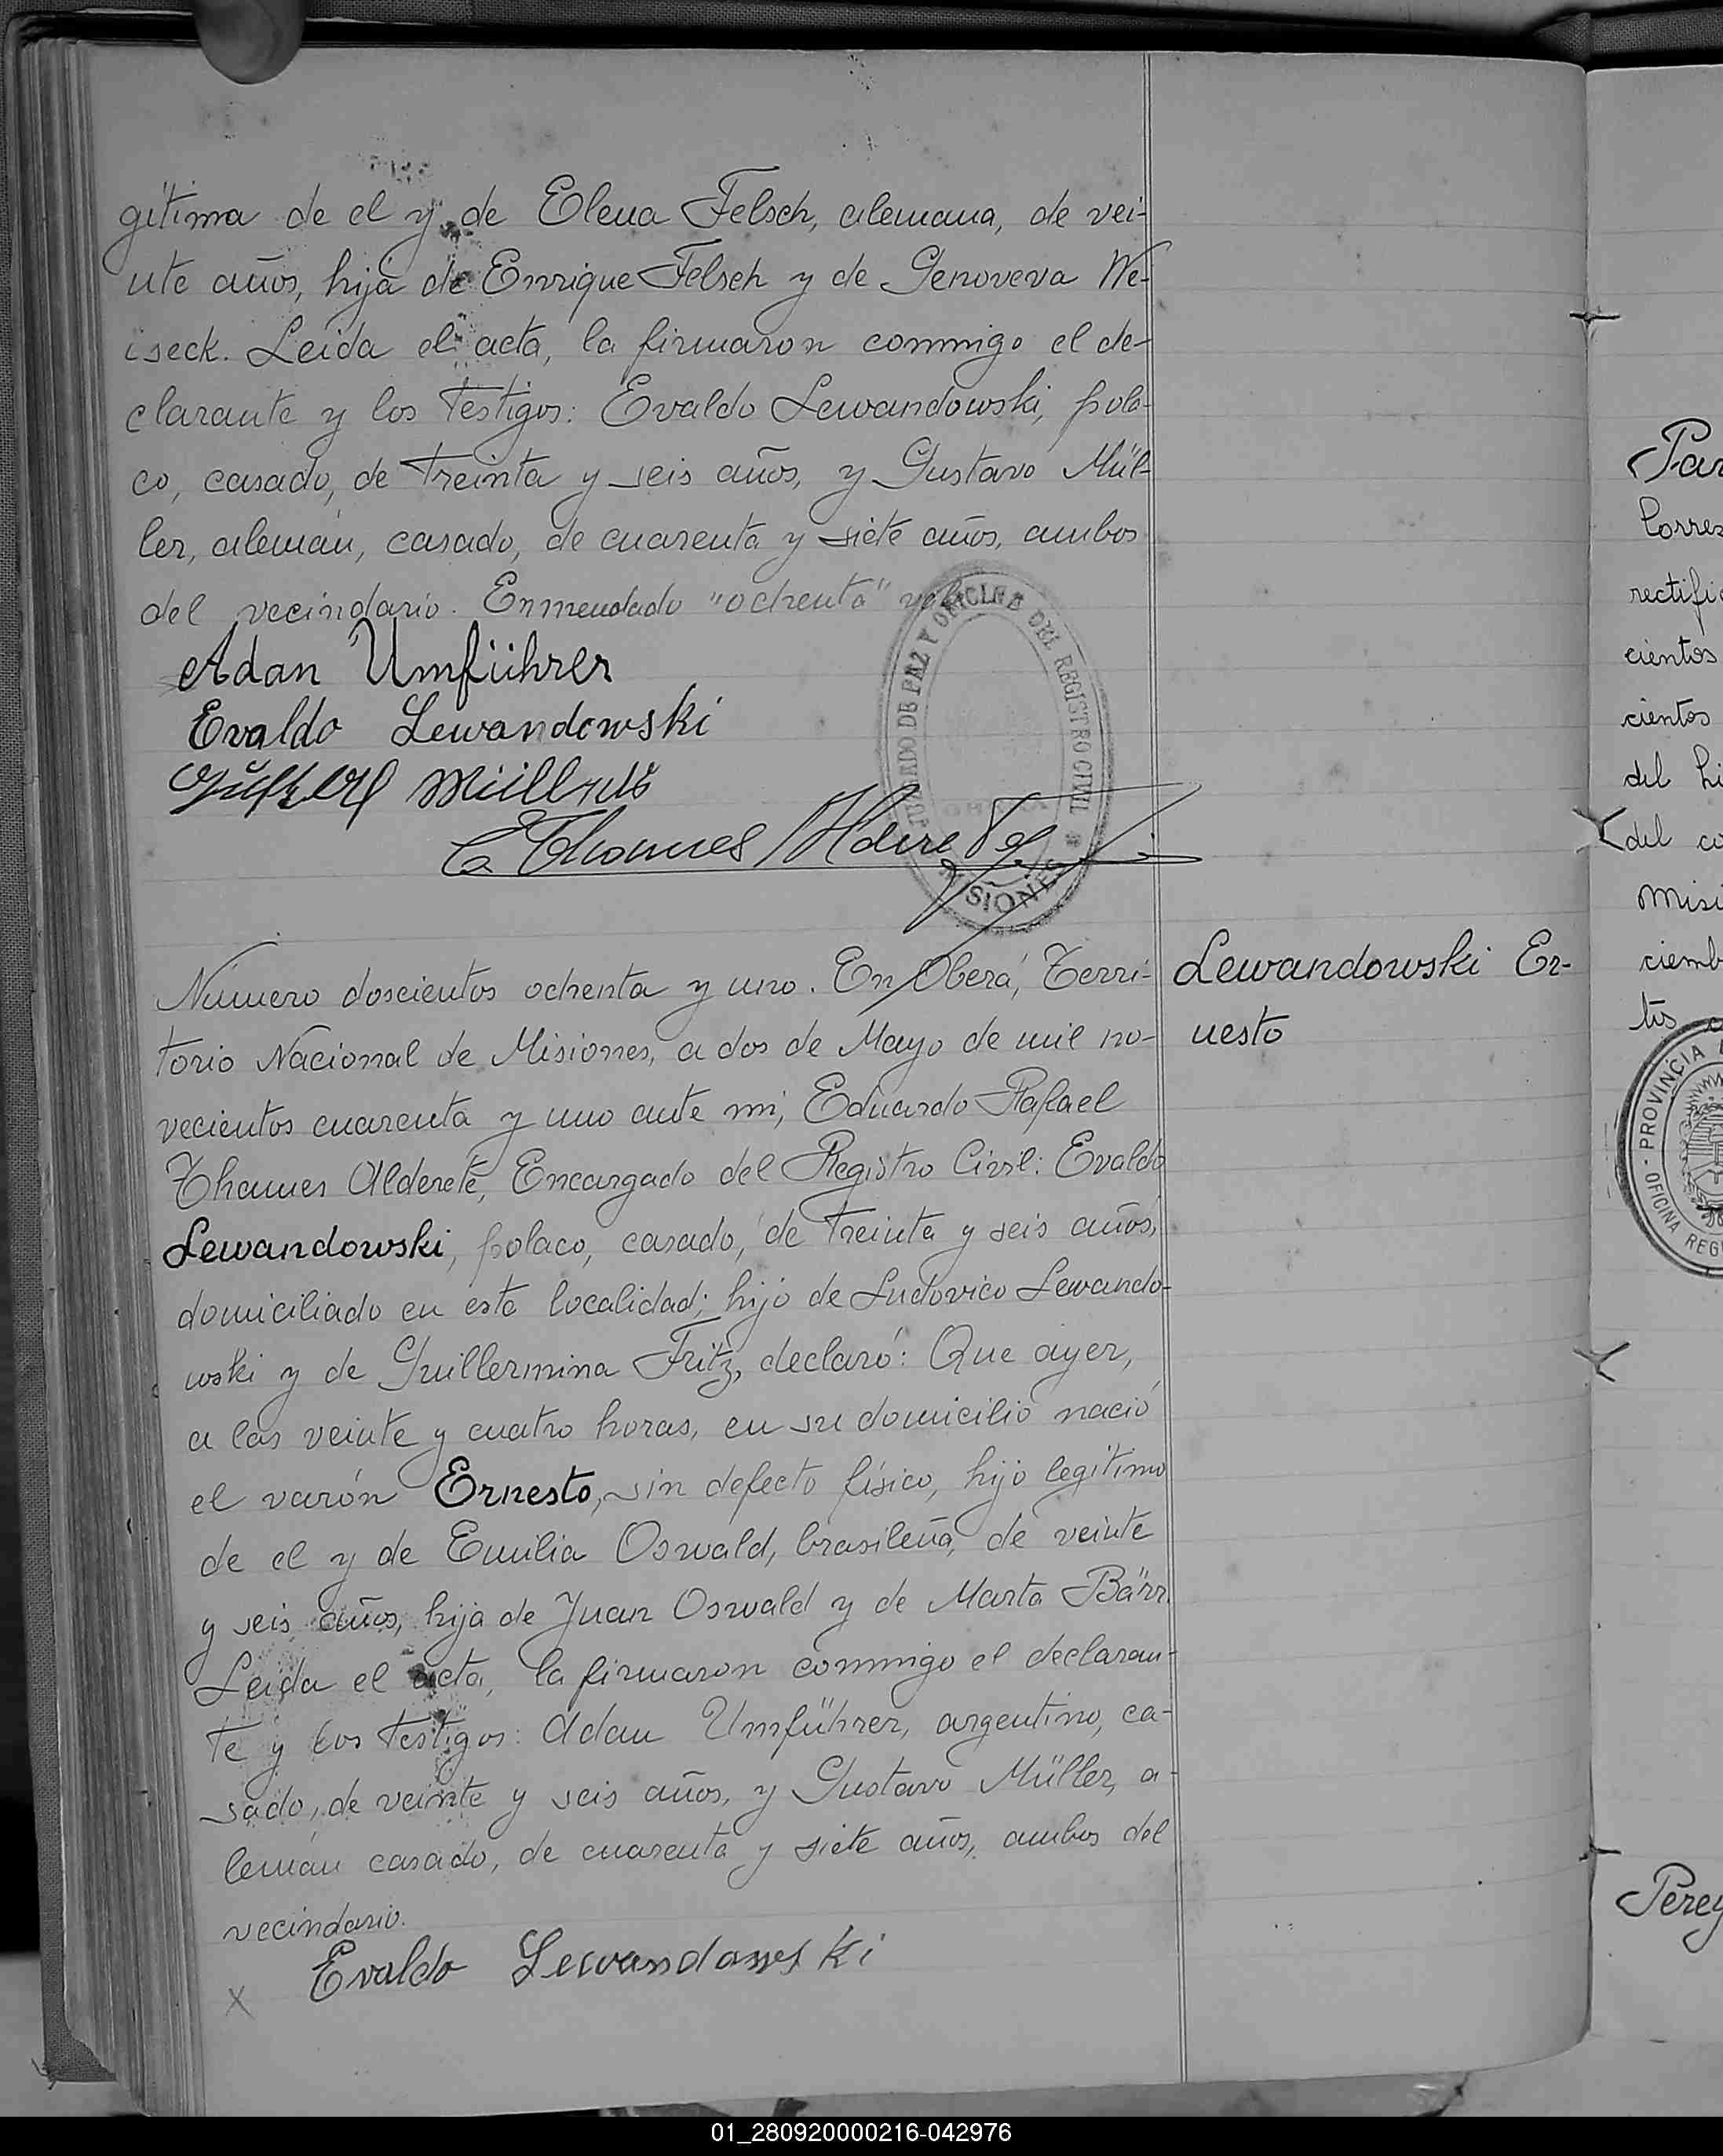 gitima de el y de Elena Felsch, alemana, de vei-
nte años, hija de Enrique Felsch y de Genoveva We-
iseck. Leida el acta, la firmaron conmigo el de-
clarante y los testigos: Evaldo Lewandowski, pola-
co, casado, de treinta y seis años, y Gustavo Mül-
ler, alemán, casado, de cuarenta y siete años, ambos
del vecindario. Enmendado "ochenta" vale
Adan Umführer
Evaldo Lewandowski
E Thames Alderete
JUZGADO DE PAZ Y OFICINA DEL REGISTRO CIVIL
OBERA
MISIONES
Número doscientos ochenta y uno. En Oberá, Terri-
torio Nacional de Misiones, a dos de Mayo de mil no-
vecientos cuarenta y uno ante mi, Eduardo Rafael
Thames Alderete, Encargado del Registro Civil: Evaldo
Lewandowski, polaco, casado, de treinta y seis años,
domiciliado en esta localidad; hijo de Ludovico Lewando-
wski y de Guillermina Fritz, declaró: Que ayer,
a las veinte y cuatro horas, en su domicilio nació
el varón Ernesto, sin defecto físico, hijo legitimo
de el y de Emilia Oswald, brasileña, de veinte
y seis años, hija de Juan Oswald y de Marta Bärr.
Leida el acta, la firmaron conmigo el declaran-
te y los testigos: Adan Umführer, argentino, ca-
sado, de veinte y seis años, y Gustavo Müller, a-
lemán casado, de cuarenta y siete años, ambos del
vecindario.
x Evaldo Lewandowski
Lewandowski Er-
nesto
Par
Corres
rectific
cientos
cientos
del hi
del co
Misi
ciemb
tis
PROVINCIA
OFICINA REG
Perey
01_280920000216-042976